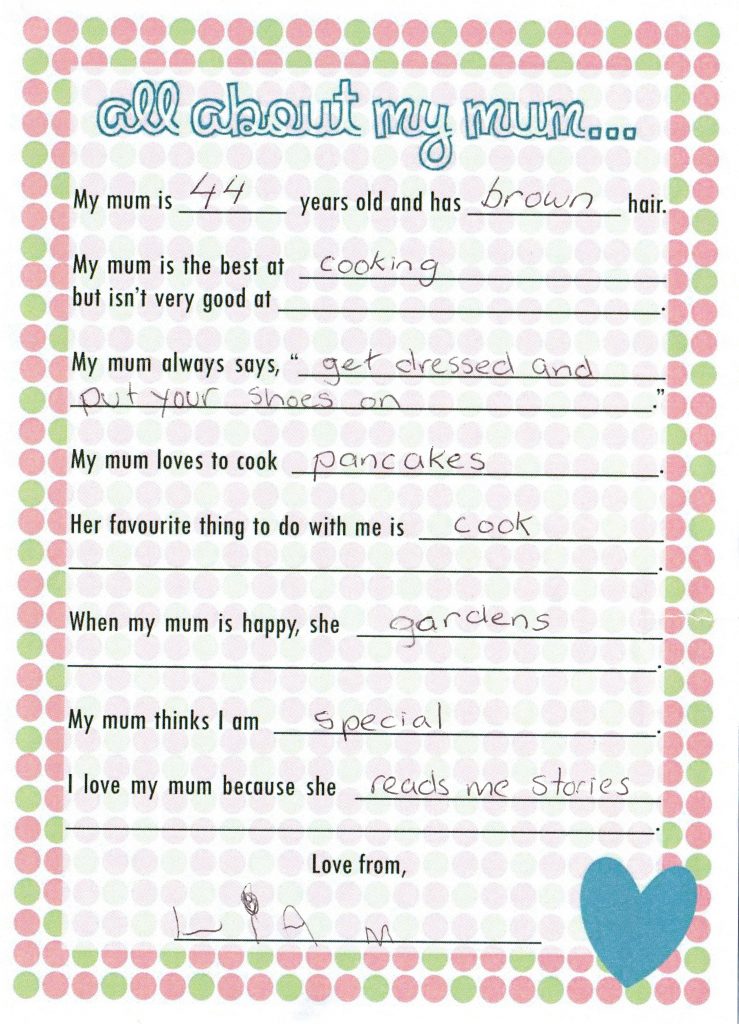 all about my mum...
My mum is 44 years old and has brown hair.
My mum is the best at cooking
but isn't very good at .
My mum always says, "get dressed and
put your shoes on."
My mum loves to cook pancakes.
Her favourite thing to do with me is cook
.
When my mum is happy, she gardens
.
My mum thinks I am special.
I love my mum because she reads me stories
.
Love from,
Liam